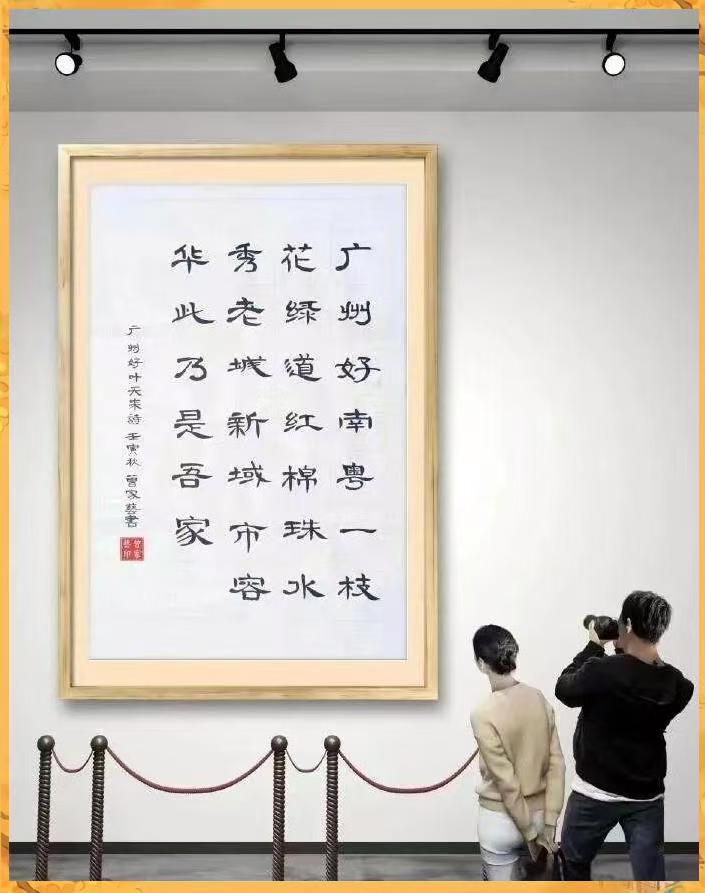 广州好南粤一枝
花绿道红棉珠水
秀老城新域市容
华此乃是吾家
广州好叶天来詩 壬寅秋 曾家藝書